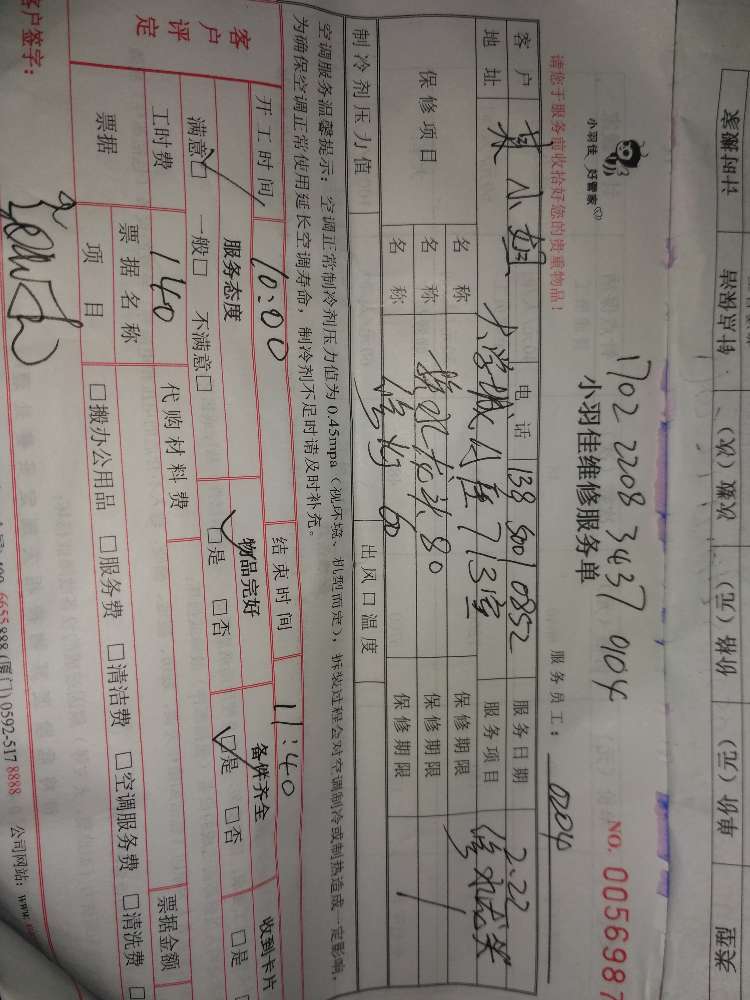 计时搬家 针点保洁 次数（次） 价格（元） 单价（元） 类型
1702 2208 3437 0104
小羽佳 好管家
小羽佳维修服务单
NO. 0056987
请您于服务前收拾好您的贵重物品！
服务员工： 0204
客户 吴小姐 电话 138 5001 0852 服务日期 2.22
地址 大学城 713室 服务项目 修水龙头
保修项目
名称 换水龙头 80 保修期限
名称 60 保修期限
名称 保修期限
制冷剂压力值 出风口温度
空调服务温馨提示：空调正常制冷剂压力值为0.45mpa（视环境、机型而定），拆装过程会对空调制冷或制热造成一定影响，
为确保空调正常使用延长空调寿命，制冷剂不足时请及时补充。
开工时间 10:00 结束时间 11:40
客户评定
服务态度 物品完好 备件齐全 收到卡片
满意□ 一般□ 不满意□ □是 □否 □是 □否 □是
工时费 140 代购材料费 票据金额
票据 票据名称
项目 □搬办公用品 □服务费 □清洁费 □空调服务费 □清洗费
客户签字：
6655888 (厦门) 0592-517 8888 公司网站：www.